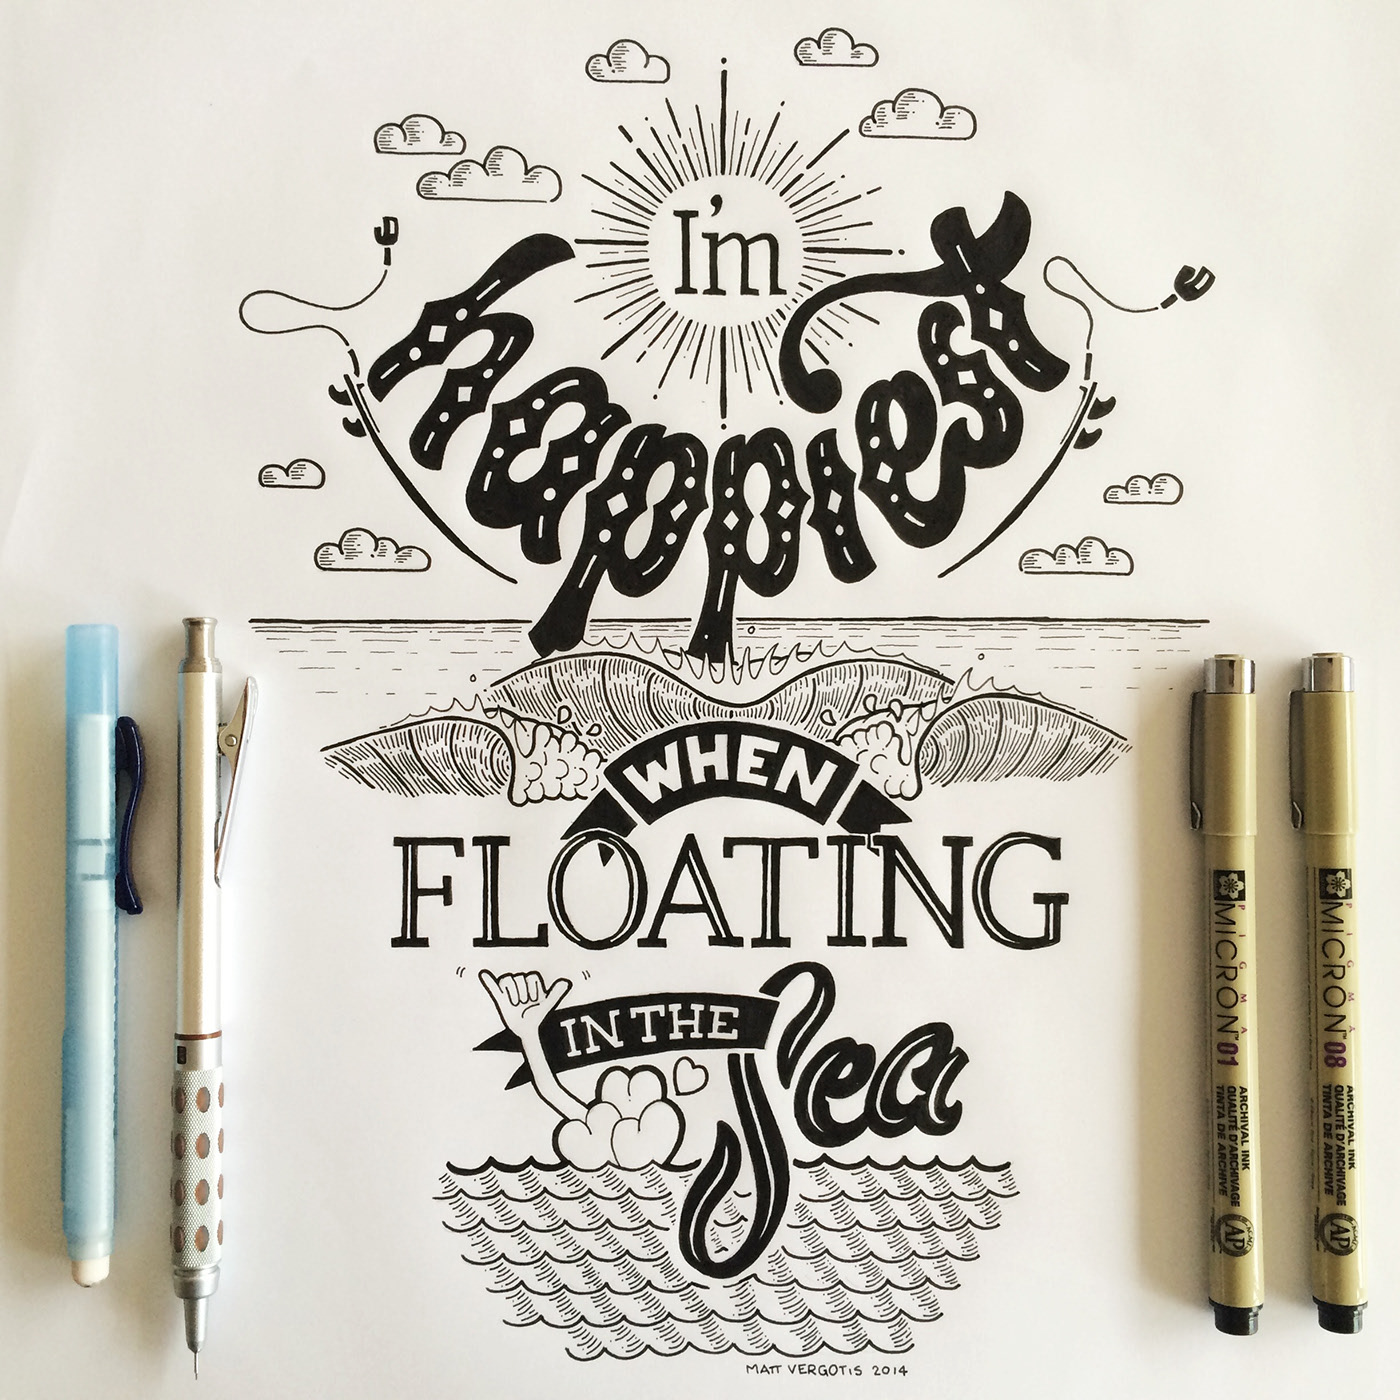 I'm
happiest
WHEN
FLOATING
IN THE
Sea
MATT VERGOTIS 2014
PIGMA
MICRON 01
ARCHIVAL INK
QUALITÉ D'ARCHIVAGE
TINTA DE ARCHIVE
AP
PIGMA
MICRON 08
ARCHIVAL INK
QUALITÉ D'ARCHIVAGE
TINTA DE ARCHIVE
AP